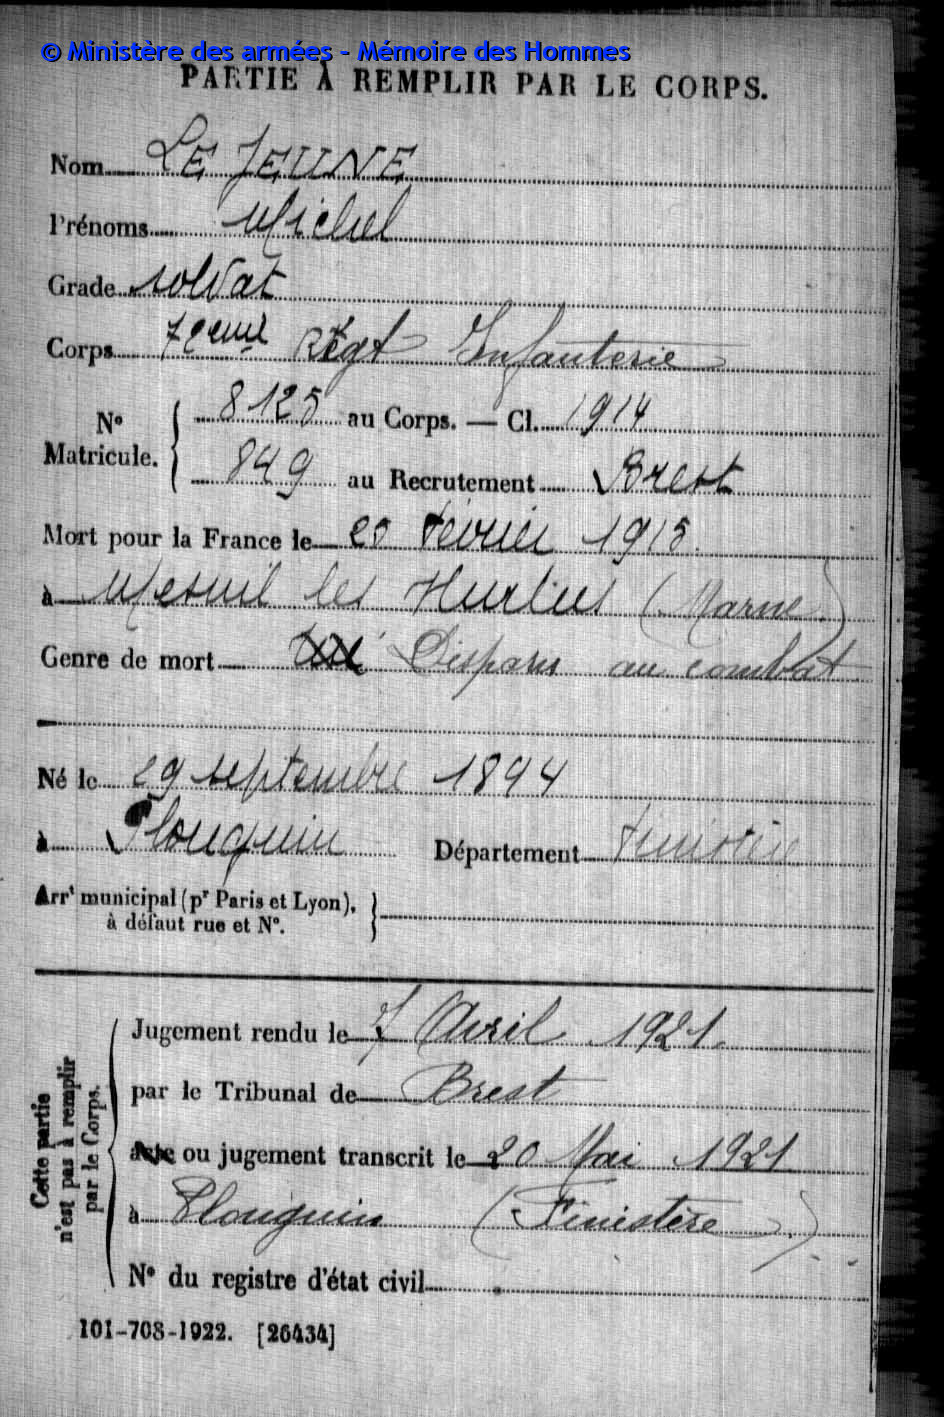 © Ministère des armées - Mémoire des Hommes
PARTIE À REMPLIR PAR LE CORPS.
Nom LE JEUNE
Prénoms Michel
Grade soldat
Corps Régt Infanterie
N° Matricule. 8125 au Corps. — Cl. 1914
849 au Recrutement Brest
Mort pour la France le février 1915.
à Mesnil les Hurlus (Marne)
Genre de mort Disparu au combat
Né le 29 septembre 1894
à Plouguin Département Finistère
Arrt municipal (pr Paris et Lyon),
à défaut rue et N°.
Cette partie
n'est pas à remplir
par le Corps.
Jugement rendu le 7 Avril 1921.
par le Tribunal de Brest
acte ou jugement transcrit le 20 Mai 1921
à Plouguin (Finistère)
N° du registre d'état civil
101-708-1922. [26434]